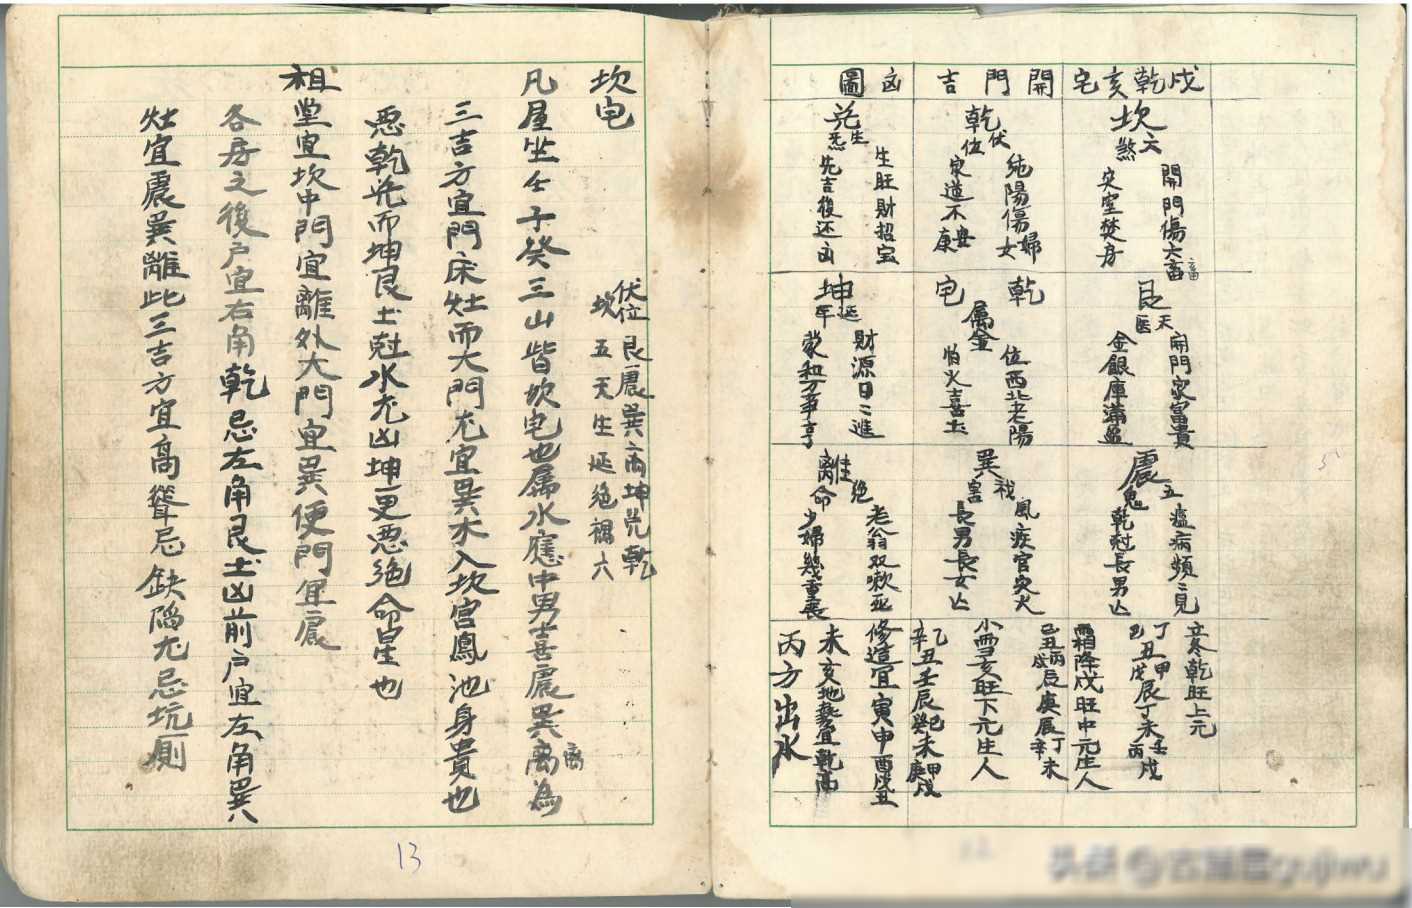 戌乾亥宅開門吉凶圖
坎六煞
開門傷六畜
灾室焚身
乾伏位
純陽傷婦女
家道不安康
生旺財招宝
先吉後还凶
艮天医
開門家富貴
金銀庫滿盈
乾宅
属金
位西北老陽
怕火喜土
坤延年
財源日二進
蒙和万事亨
震五鬼
瘟病頻二見
乾尅長男亾
巽禍害
風疾官灾火
長男長女亾
離絶命
老翁双瞅死
少婦幾重喪
立冬乾旺上元
丁丑甲辰丁未壬戌
己 戊 丙
霜降戌旺中元生人
己丑丙辰庚辰丁未
戊 辛
小雪亥旺下元生人
乙丑壬辰 己未甲戌
辛 庚
修造宜寅申酉戌丑
未亥地
丙方出水
坎宅
伏位艮震巽离坤兑乾
坎五天生延絶禍六
凡屋坐壬子癸三山皆坎宅也属水應中男喜震巽离為
三吉方宜門床灶而大門尤宜巽木入坎宮鳳池身貴也
忌乾兑而坤艮土尅水尤凶坤更忌絶命星也
祖堂宜坎中門宜離外大門宜巽便門宜震
各房之後户宜右角乾忌左角艮土凶前户宜左角巽
灶宜震巽離此三吉方宜高聳忌缺陷尤忌坑厠
13